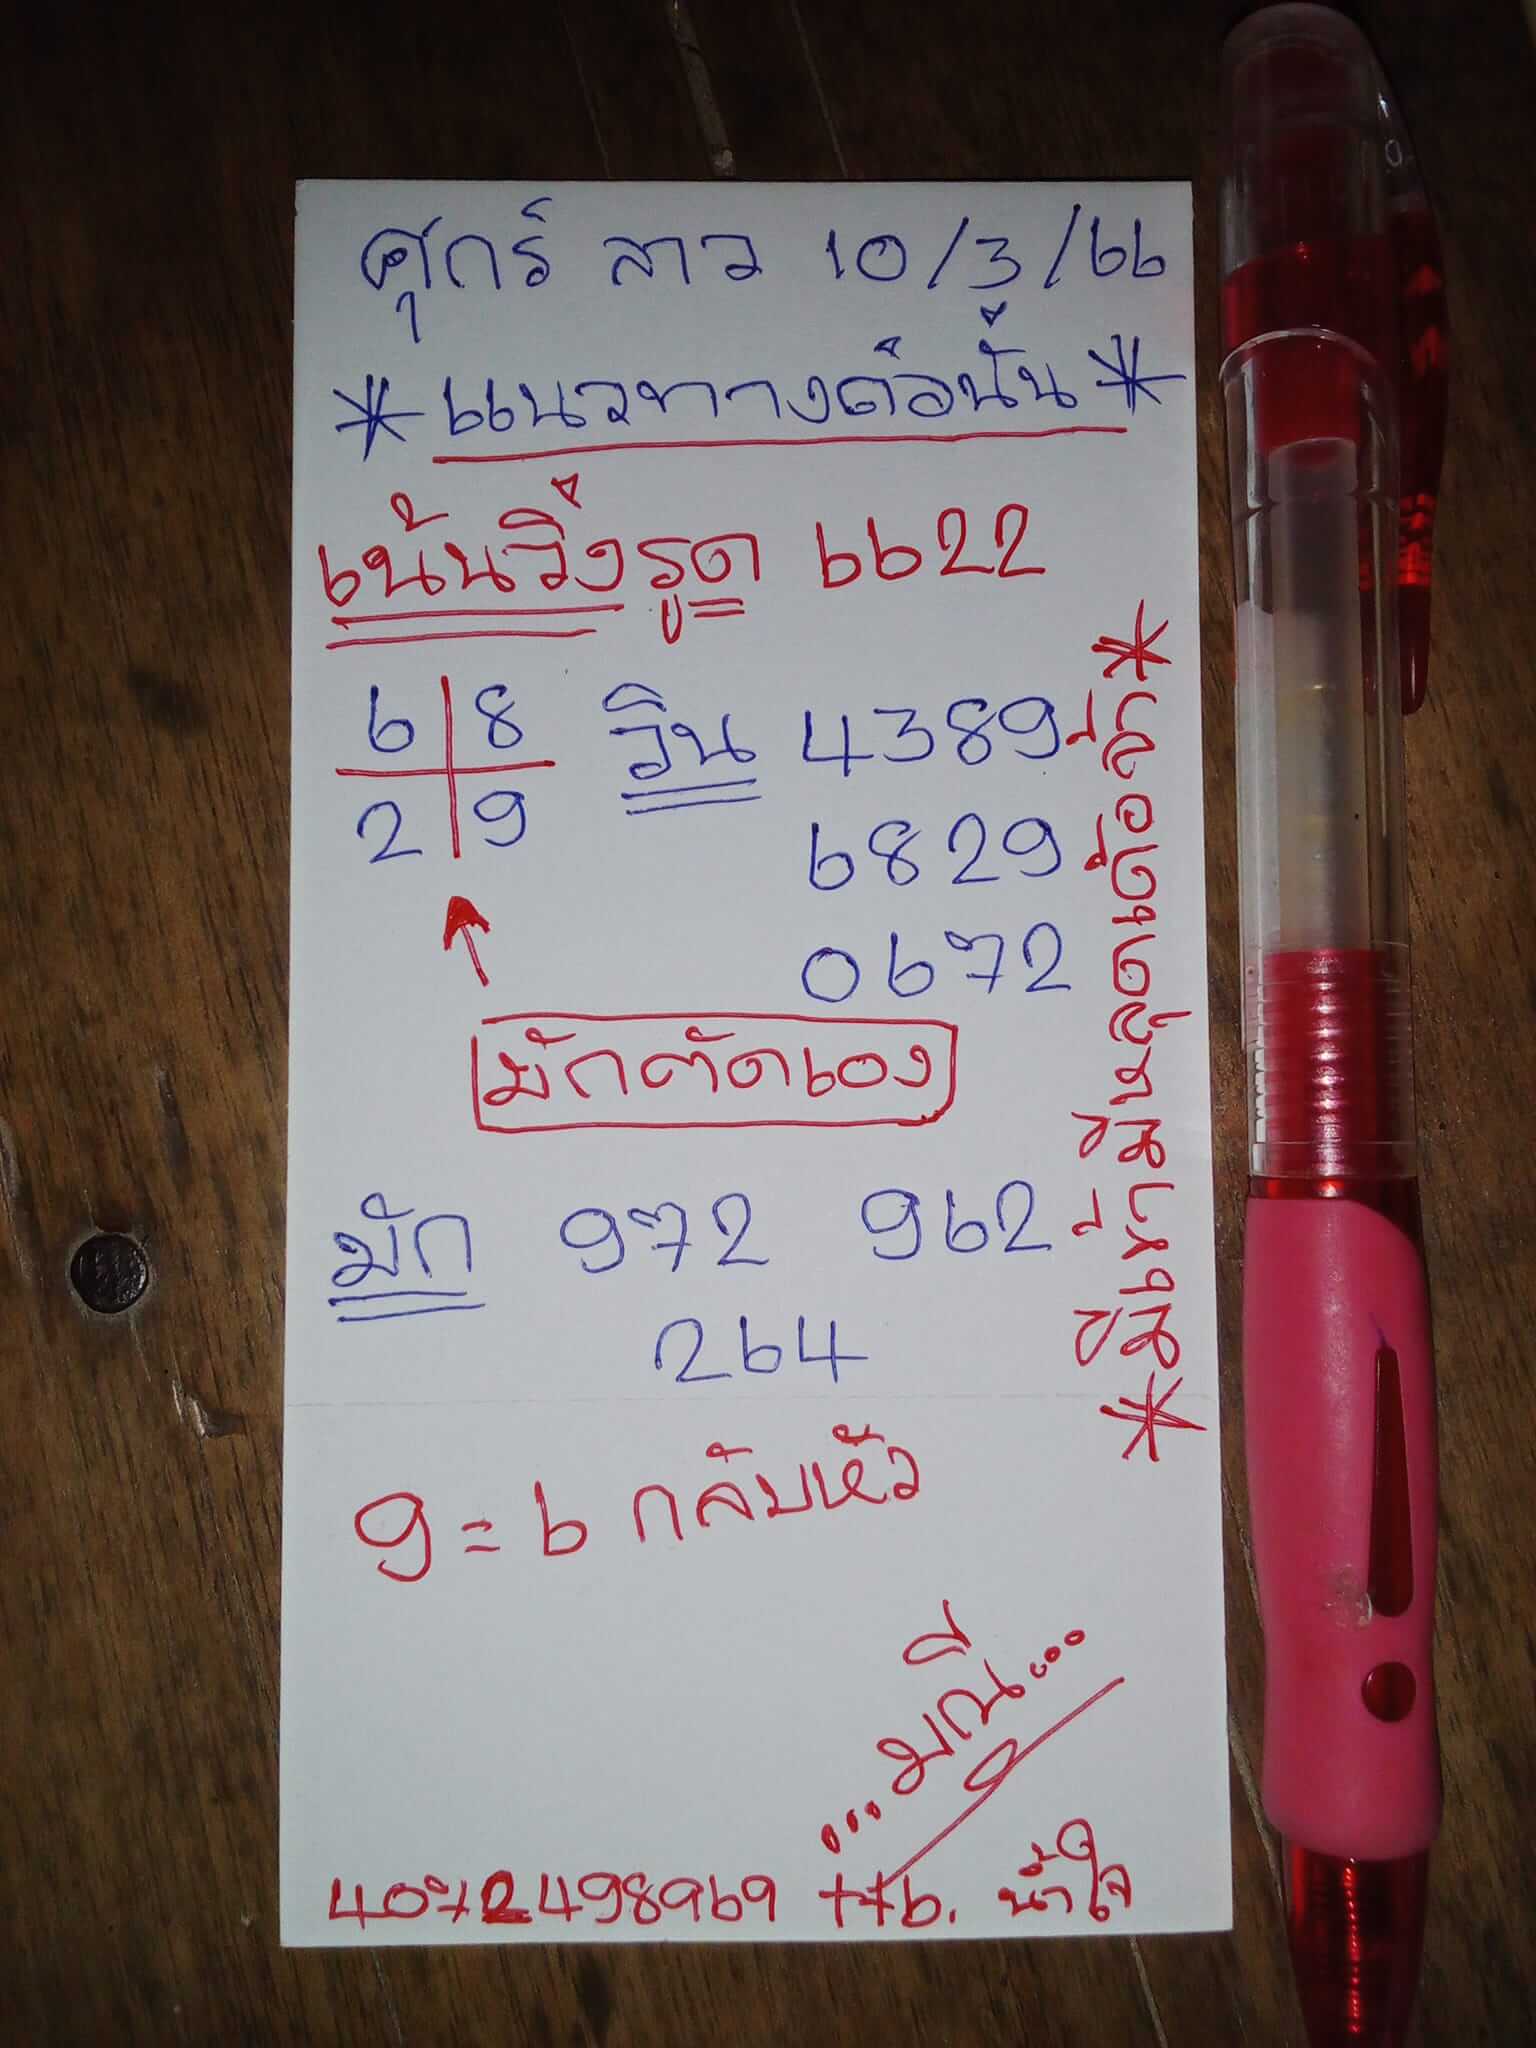 ศุกร์ ลาว 10/3/66
*แนวทางต่อนั้น*
เน้นวิ่งรูด 6622
6 8 วิน 4389
2 9 6829
0672
มักตัดเอง
มัก 972 962
264
9=6 กลับหัว
...มณี...
4072498969 ttb. น้ำใจ
*มีเข้ามีหลุดเด้อจ้า*